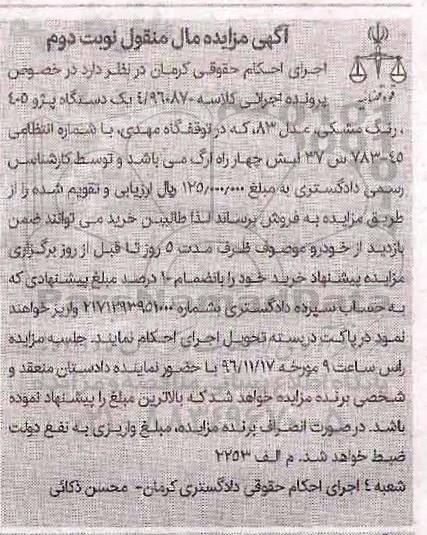 آگهی مزایده مال منقول نوبت دوم
اجرای احکام حقوقی کرمان در نظر دارد در خصوص
پرونده اجرائی کلاسه ۴/۹۶۰۸۷۰ یک دستگاه پژو ۴۰۵
، رنگ مشکی، مدل ۸۳، که در توقفگاه مهدی، با شماره انتظامی
۴۵-۷۸۳ س ۳۷ نبش چهار راه ارگ می باشد و توسط کارشناس
رسمی دادگستری به مبلغ ۱۲۵/۰۰۰/۰۰۰ ریال ارزیابی و تقویم شده را از
طریق مزایده به فروش برساند لذا طالبین خرید می توانند ضمن
بازدید از خودرو موصوف ظرف مدت ۵ روز تا قبل از روز برگزاری
مزایده پیشنهاد خرید خود را بانضمام ۱۰ درصد مبلغ پیشنهادی که
به حساب سپرده دادگستری بشماره ۲۱۷۱۲۹۳۹۵۱۰۰۰ واریز خواهند
نمود در پاکت دربسته تحویل اجرای احکام نمایند. جلسه مزایده
راس ساعت ۹ مورخه ۹۶/۱۱/۱۷ با حضور نماینده دادستان منعقد و
شخصی برنده مزایده خواهد شد که بالاترین مبلغ را پیشنهاد نموده
باشد. در صورت انصراف برنده مزایده، مبلغ واریزی به نفع دولت
ضبط خواهد شد. م الف ۲۲۵۳
شعبه ٤ اجرای احکام حقوقی دادگستری کرمان- محسن ذکائی